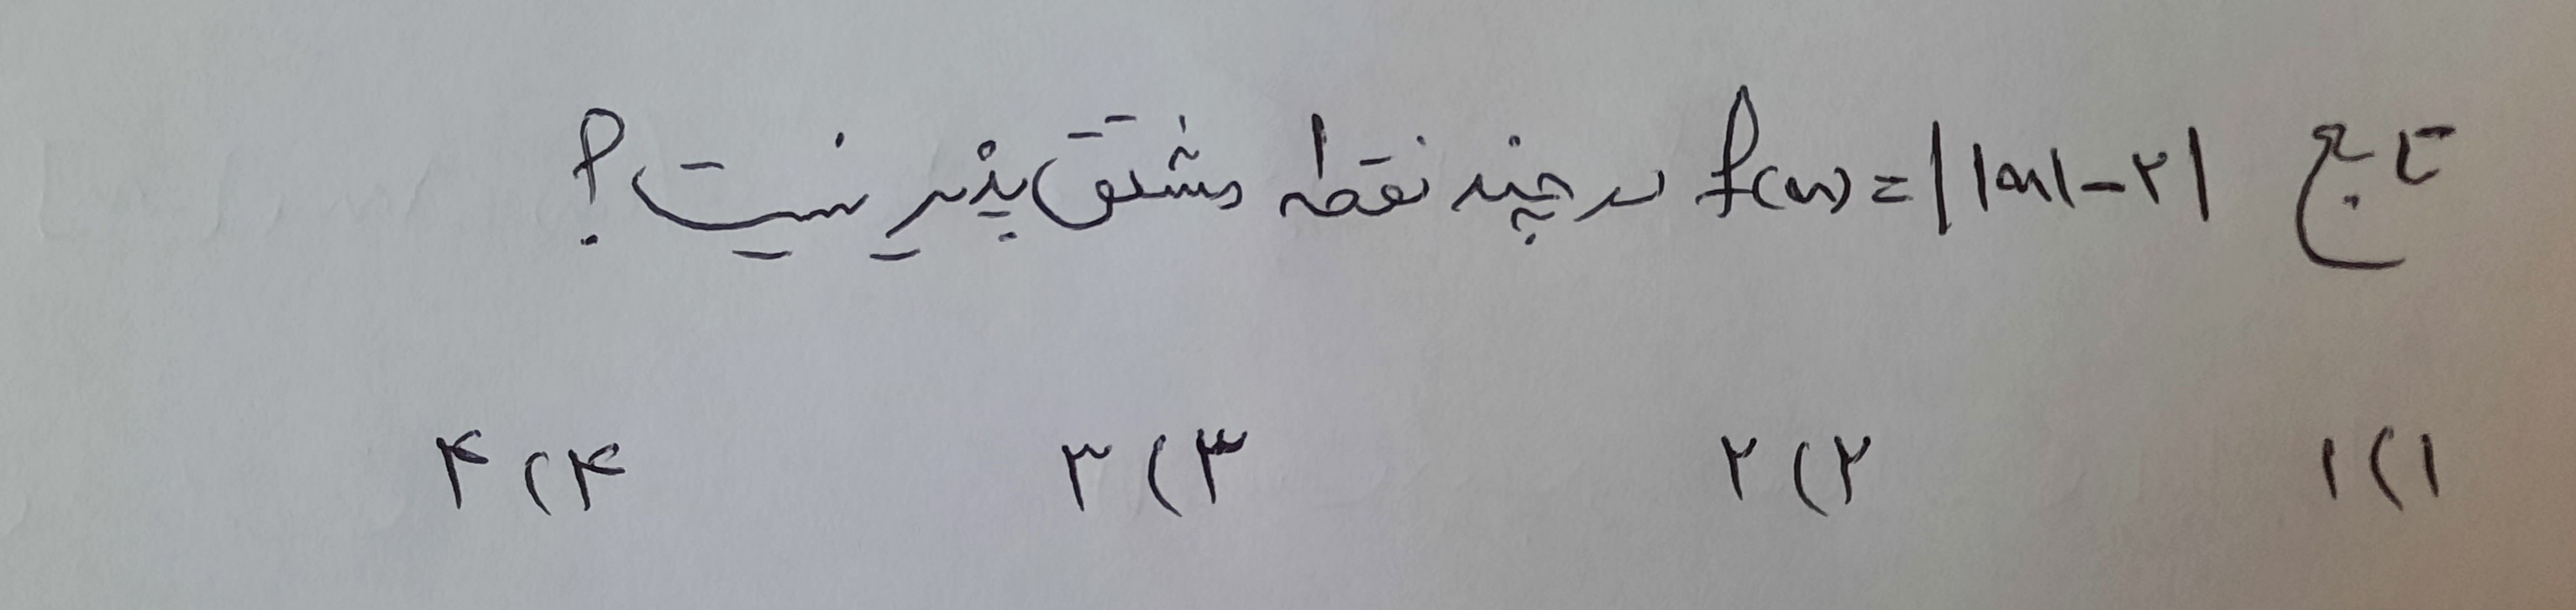 تابع f(x) = ||x| - ۲| در چند نقطه مشتق پذیر نیست؟
۱) ۱ ۲) ۲ ۳) ۳ ۴) ۴